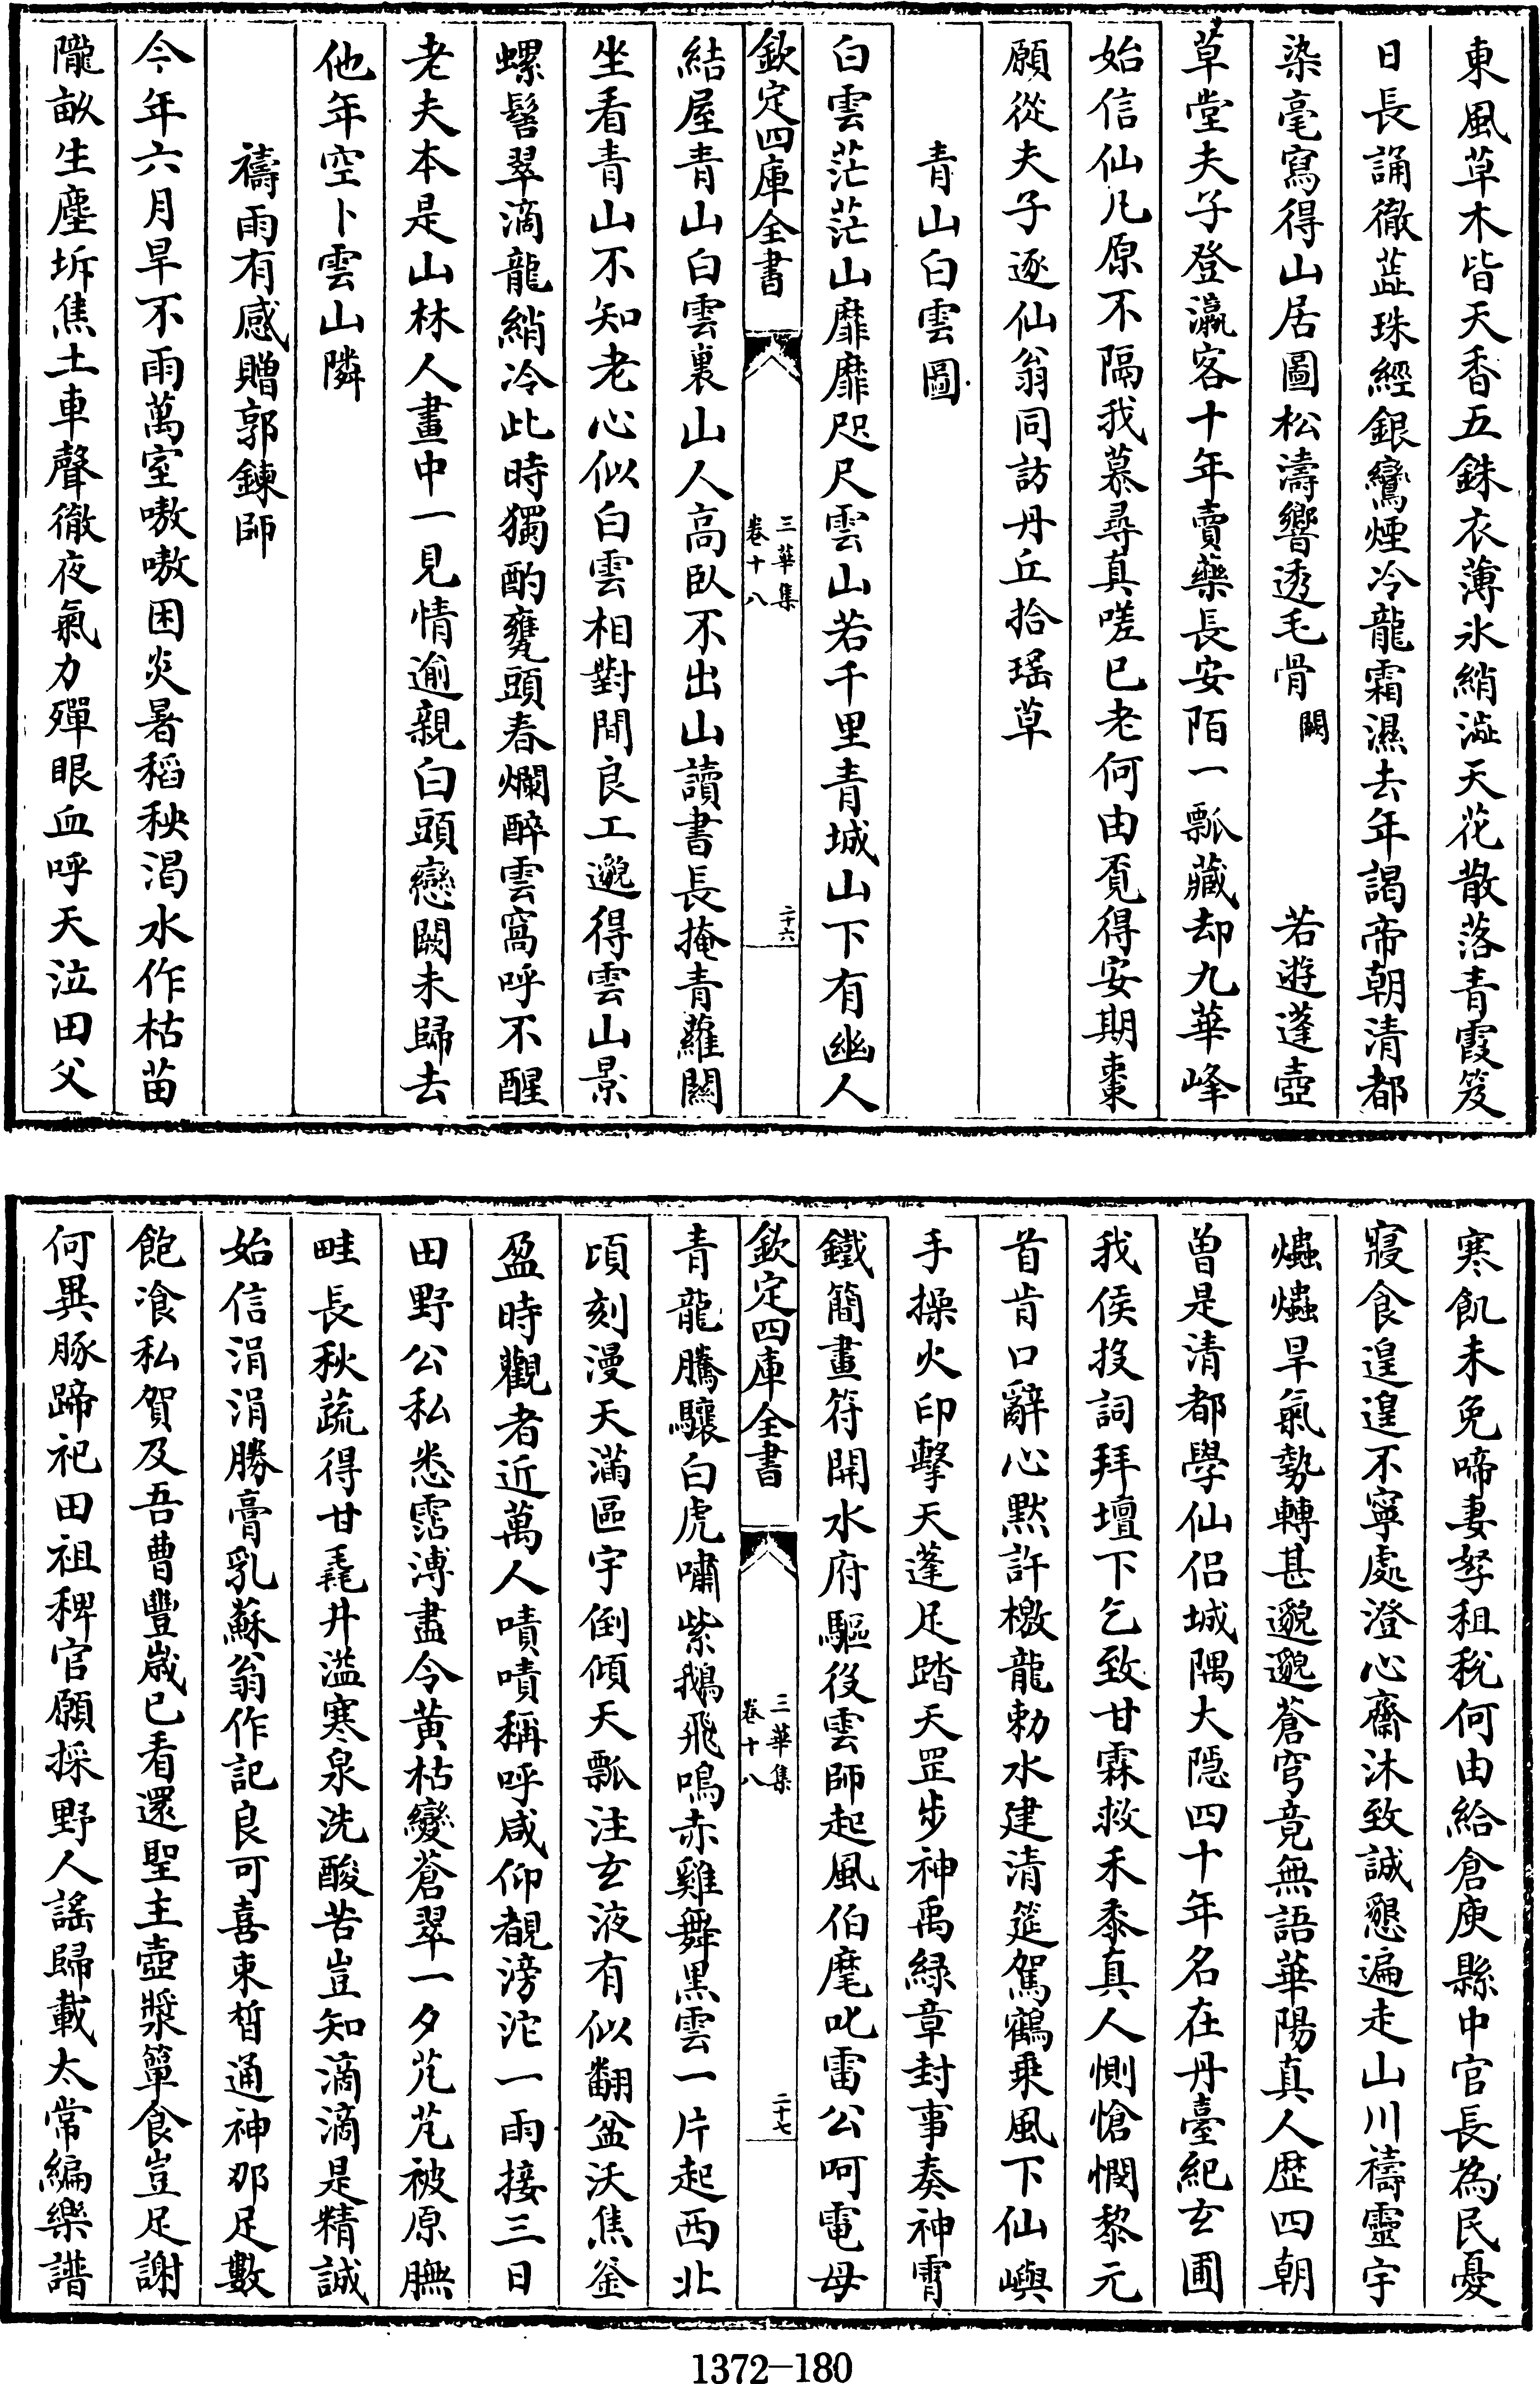 東風草木皆天香五銖衣薄氷綃澁天花散落青霞笈
日長誦徹蘂珠經銀鸞煙冷龍霜濕去年謁帝朝清都
染毫寫得山居圖松濤響透毛骨闕若遊蓬壺
草堂夫子登瀛客十年賣藥長安陌一瓢藏却九華峰
始信仙凡原不隔我慕尋真嗟已老何由覔得安期棗
願從夫子逐仙翁同訪丹丘拾瑶草
青山白雲圖
白雲茫茫山靡靡咫尺雲山若千里青城山下有幽人
欽定四庫全書
三華集
卷十八
二十六
結屋青山白雲裏山人高臥不出山讀書長掩青蘿關
坐看青山不知老心似白雲相對閒良工邈得雲山景
螺髻翠滴龍綃冷此時獨酌甕頭春爛醉雲窩呼不醒
老夫本是山林人畫中一見情逾親白頭戀闕未歸去
他年空卜雲山隣
禱雨有感贈郭鍊師
今年六月旱不雨萬室嗷嗷困炎暑稻秧渴水作枯苗
隴畝生塵坼焦土車聲徹夜氣力殫眼血呼天泣田父
寒飢未免啼妻孥租税何由給倉庾縣中官長為民憂
寢食遑遑不寧處澄心齋沐致誠懇遍走山川禱靈宇
爞爞旱氣勢轉甚邈邈蒼穹竟無語華陽真人歷四朝
曽是清都學仙侣城隅大隠四十年名在丹臺紀玄圃
我侯投詞拜壇下乞致甘霖救禾黍真人惻愴憫黎元
首肯口辭心默許檄龍勅水建清筵駕鶴乗風下仙嶼
手操火印擊天蓬足踏天罡步神禹緑章封事奏神霄
鐵簡畫符開水府驅役雲師起風伯麾叱雷公呵電母
欽定四庫全書
三華集
卷十八
二十七
青龍騰驤白虎嘯紫鵝飛鳴赤雞舞黒雲一片起西北
頃刻漫天滿區宇倒傾天瓢注玄液有似翻盆沃焦釜
盈時觀者近萬人嘖嘖稱呼咸仰覩滂沱一雨接三日
田野公私悉霑溥盡令黄枯變蒼翠一夕芃芃被原膴
畦長秋蔬得甘毳井溢寒泉洗酸苦豈知滴滴是精誠
始信涓涓勝膏乳蘇翁作記良可喜束晳通神那足數
飽飡私賀及吾曹豐嵗已看還聖主壺漿簞食豈足謝
何異豚蹄祀田祖稗官願採野人謡歸載太常編樂譜
1372-180